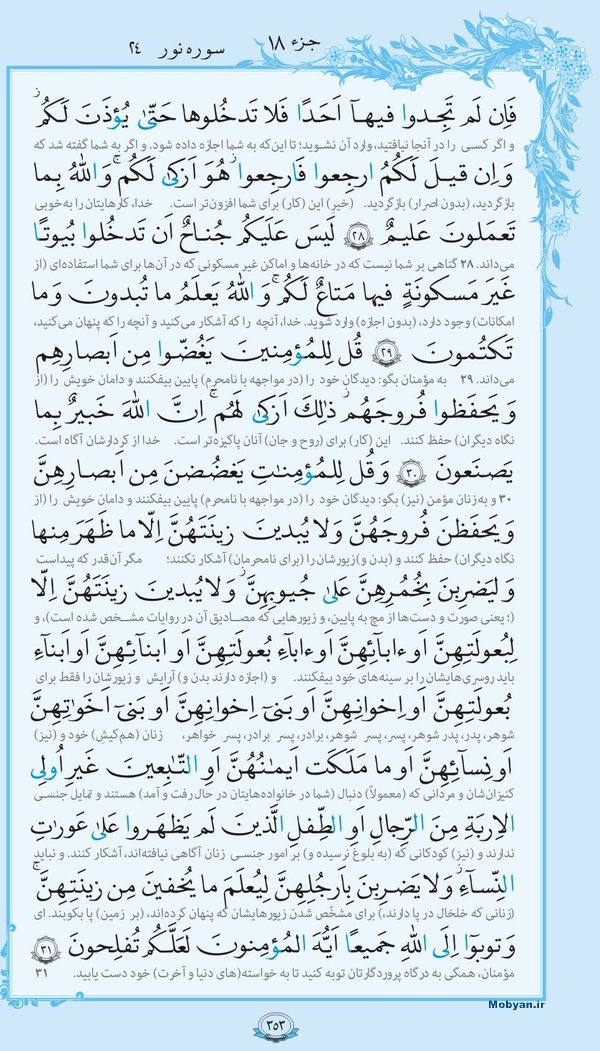 جزء ۱۸ سوره نور ۲۴
فَاِن لَم تَجِدوا فيهآ اَحَدًا فَلا تَدخُلوها حَتّىٰ يُؤذَنَ لَكُمۖ
و اگر کسی را در آنجا نیافتید، وارد آن نشوید؛ تا این‌که به شما اجازه داده شود. و اگر به شما گفته شد که
وَ اِن قيلَ لَكُمُ ارجِعوا فَارجِعواۖ هُوَ اَزكىٰ لَكُمۚ وَ اللهُ بِما
بازگردید، (بدون اصرار) بازگردید. (خیر) این (کار) برای شما افزون‌تر است. خدا، کارهایتان را به‌خوبی
تَعمَلونَ عَليمٌ ﴿۲۸﴾ لَيسَ عَلَيكُم جُناحٌ اَن تَدخُلوا بُيوتًا
می‌داند. ۲۸ گناهی بر شما نیست که در خانه‌ها و اماکن غیر مسکونی که در آن‌ها برای شما استفاده‌ای (از
غَيرَ مَسكونَةٍ فيها مَتاعٌ لَكُمۚ وَ اللهُ يَعلَمُ ما تُبدونَ وَ ما
امکانات) وجود دارد، (بدون اجازه) وارد شوید. خدا، آنچه را که آشکار می‌کنید و آنچه را که پنهان می‌کنید،
تَكتُمونَ ﴿۲۹﴾ قُل لِلمُؤمِنينَ يَغُضّوا مِن اَبصارِهِم
می‌داند. ۲۹ به مؤمنان بگو: دیدگان خود را (در مواجهه با نامحرم) پایین بیفکنند و دامان خویش را (از
وَ يَحفَظوا فُروجَهُمۚ ذٰلِكَ اَزكىٰ لَهُمۚ اِنَّ اللهَ خَبيرٌ بِما
نگاه دیگران) حفظ کنند. این (کار) برای (روح و جان) آنان پاکیزه‌تر است. خدا از کردارشان آگاه است.
يَصنَعونَ ﴿۳۰﴾ وَ قُل لِلمُؤمِنٰتِ يَغضُضنَ مِن اَبصارِهِنَّ
۳۰ و به زنان مؤمن (نیز) بگو: دیدگان خود را (در مواجهه با نامحرم) پایین بیفکنند و دامان خویش را (از
وَ يَحفَظنَ فُروجَهُنَّ وَ لا يُبدينَ زينَتَهُنَّ اِلّا ما ظَهَرَ مِنها
نگاه دیگران) حفظ کنند و (بدن و) زیورشان را (برای نامحرمان) آشکار نکنند؛ مگر آن‌قدر که پیداست
وَ ليَضرِبنَ بِخُمُرِهِنَّ عَلىٰ جُيوبِهِنَّۖ وَ لا يُبدينَ زينَتَهُنَّ اِلّا
(؛ یعنی صورت و دست‌ها از مچ به پایین، و زیورهایی که مصادیق آن در روایات مشخص شده است)، و
لِبُعولَتِهِنَّ اَو ءابآئِهِنَّ اَو ءابآءِ بُعولَتِهِنَّ اَو اَبنآئِهِنَّ اَو اَبنآءِ
باید روسری‌هایشان را بر سینه‌های خود بیفکنند. و (اجازه دارند بدن و) آرایش و زیورشان را فقط برای
بُعولَتِهِنَّ اَو اِخوانِهِنَّ اَو بَنیٓ اِخوانِهِنَّ اَو بَنیٓ اَخَوٰتِهِنَّ
شوهر، پدر، پدر شوهر، پسر، پسر شوهر، برادر، پسر برادر، پسر خواهر، زنان (هم‌کیش) خود و (نیز)
اَو نِسآئِهِنَّ اَو ما مَلَكَت اَيمٰنُهُنَّ اَوِ التّٰبِعينَ غَيرِ اُولِی
کنیزان‌شان و مردانی که (معمولاً) دنبال (شما در خانواده‌هایتان در حال رفت و آمد) هستند و تمایل جنسی
الاِربَةِ مِنَ الرِّجالِ اَوِ الطِّفلِ الَّذينَ لَم يَظهَروا عَلىٰ عَورٰتِ
ندارند و (نیز) کودکانی که (به بلوغ نرسیده و) بر امور جنسی زنان آگاهی نیافته‌اند، آشکار کنند. و نباید
النِّسآءِۖ وَ لا يَضرِبنَ بِاَرجُلِهِنَّ لِيُعلَمَ ما يُخفينَ مِن زينَتِهِنَّۚ
(زنانی که خلخال در پا دارند،) برای مشخّص شدن زیورهایشان که پنهان کرده‌اند، (بر زمین) پا بکوبند. ای
وَ توبوا اِلَی اللهِ جَميعًا اَيُّهَ المُؤمِنونَ لَعَلَّكُم تُفلِحونَ ﴿۳۱﴾
مؤمنان، همگی به درگاه پروردگارتان توبه کنید تا به خواسته(های دنیا و آخرت) خود دست یابید. ۳۱
Mobyan.ir
۳۵۳